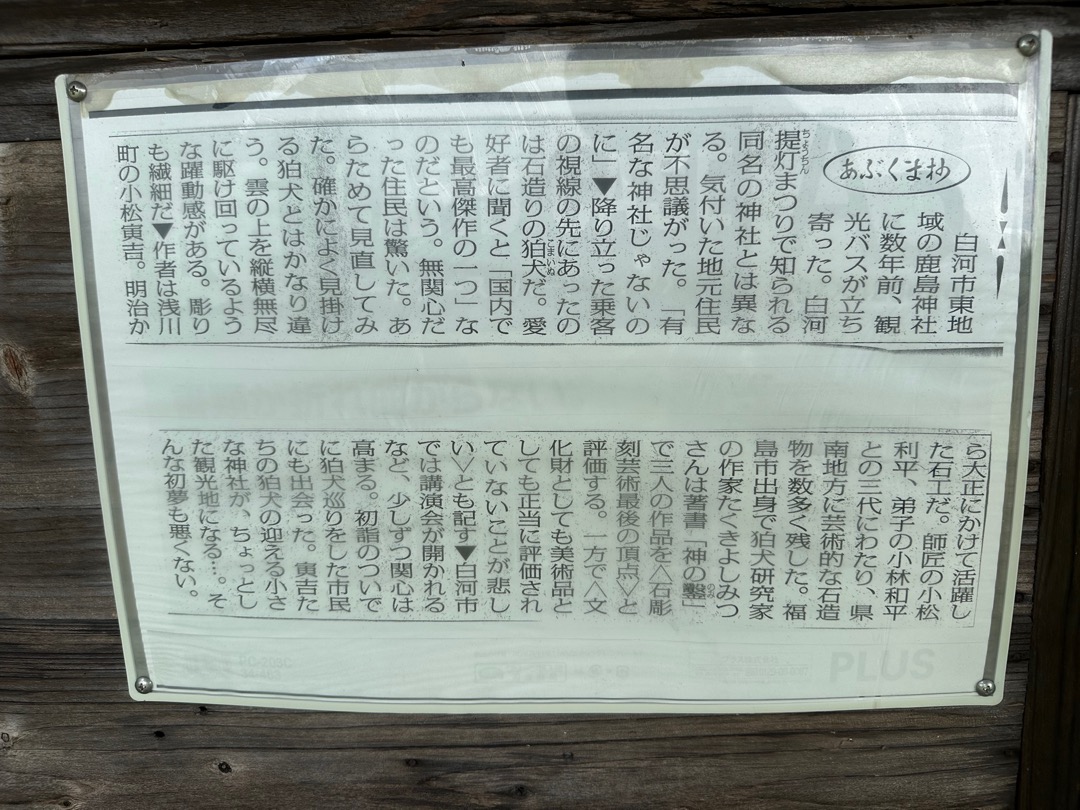 あぶくま抄
白河市東地
域の鹿島神社
に数年前、観
光バスが立ち
寄った。白河
提灯まつりで知られる
ちょうちん
同名の神社とは異な
る。気付いた地元住民
が不思議がった。「有
名な神社じゃないの
に」▼降り立った乗客
の視線の先にあったの
は石造りの狛犬だ。愛
こまいぬ
好者に聞くと「国内で
も最高傑作の一つ」な
のだという。無関心だ
った住民は驚いた。あ
らためて見直してみ
た。確かによく見掛け
る狛犬とはかなり違
う。雲の上を縦横無尽
に駆け回っているよう
な躍動感がある。彫り
も繊細だ▼作者は浅川
町の小松寅吉。明治か
ら大正にかけて活躍し
た石工だ。師匠の小松
利平、弟子の小林和平
との三代にわたり、県
南地方に芸術的な石造
物を数多く残した。福
島市出身で狛犬研究家
の作家たくきよしみつ
さんは著書「神の鑿」
のみ
で三人の作品を〈石彫
刻芸術最後の頂点〉と
評価する。一方で〈文
化財としても美術品と
しても正当に評価され
ていないことが悲し
い〉とも記す▼白河市
では講演会が開かれる
など、少しずつ関心は
高まる。初詣のついで
に狛犬巡りをした市民
にも出会った。寅吉た
ちの狛犬の迎える小さ
な神社が、ちょっとし
た観光地になる…。そ
んな初夢も悪くない。
PLUS